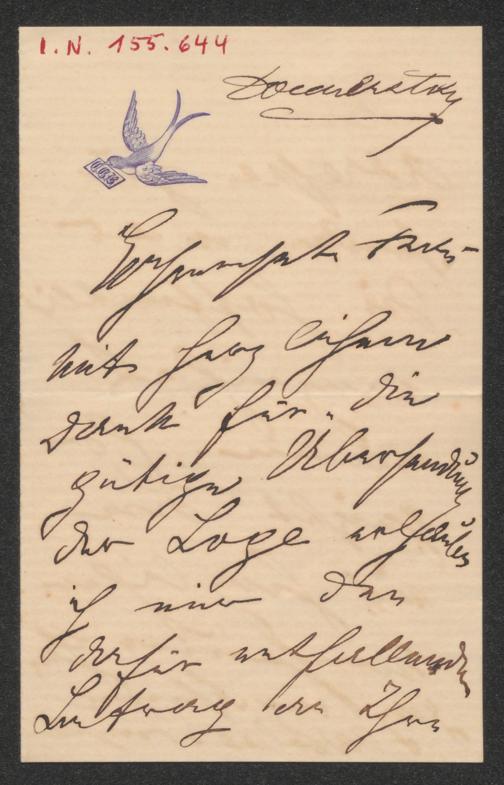 I.N. 155.644
Donnerstag
Verehrteste Frau
mit herzlichem
Dank für die
gütige Übersendung
der Loge erlaube
ich mir den
dafür entfallenden
Betrag an Ihre